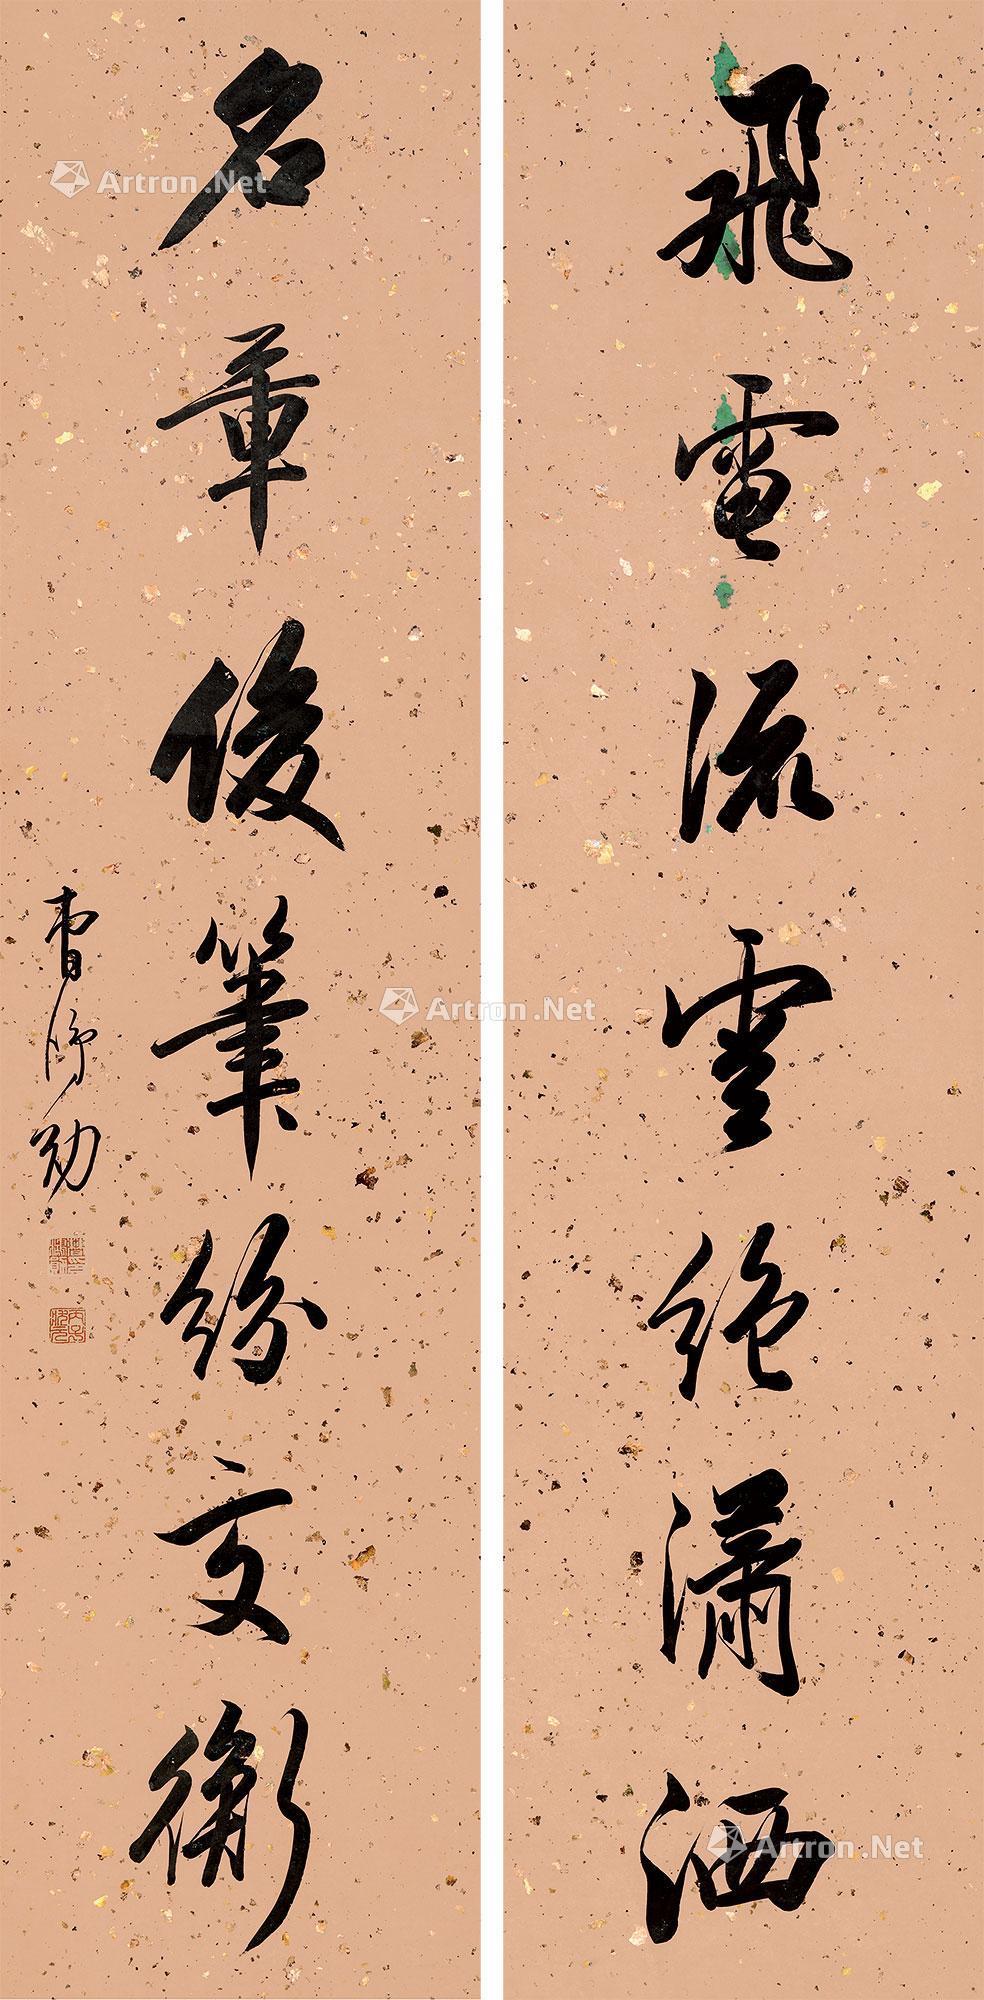 飛電流雲絕瀟洒
名章俊筆紛交衡
曹鴻勛
Artron.Net
Artron.Net
Artron.Net